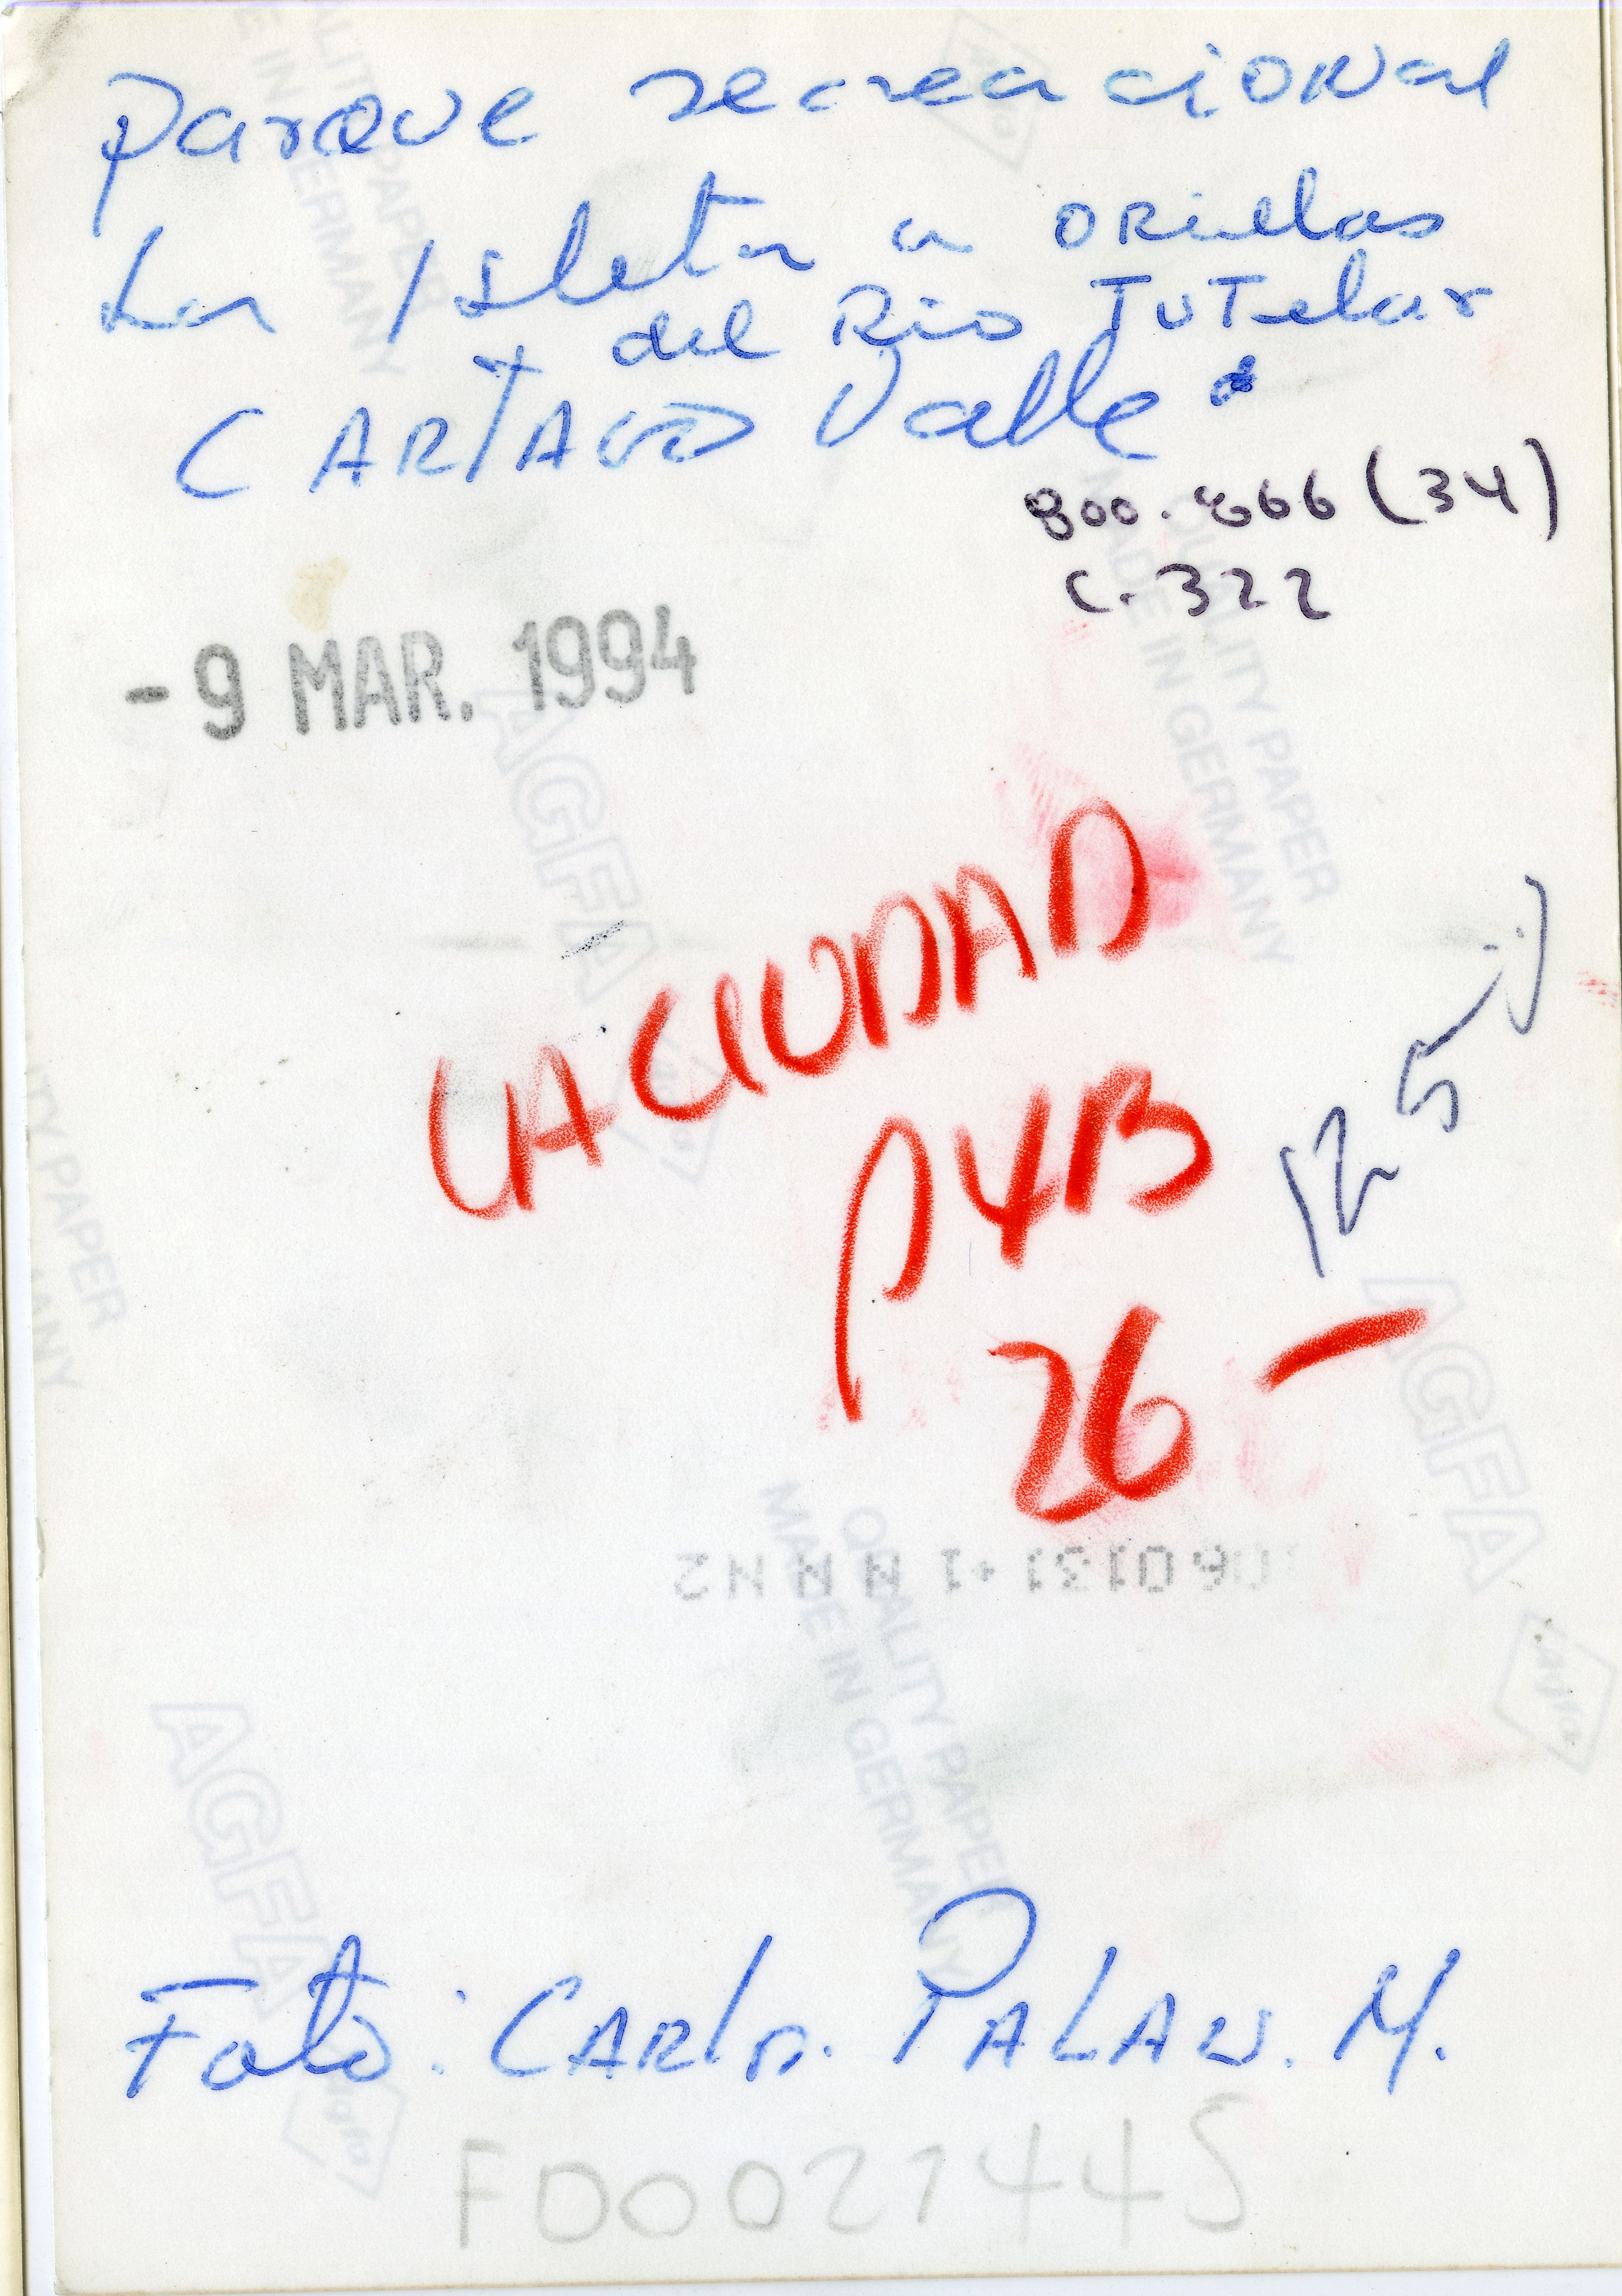 Parque recreacional
La Isleta a orillas
del Rio TUTelar
CARTAGO Valle
800.866 (34)
C-322
- 9 MAR. 1994
LA CIUDAD
P 4B
26 -
12 5
060131+1 N N N N2
Foto: CARlos. PALAU. M.
F00021445
AGFA
QUALITY PAPER
MADE IN GERMANY